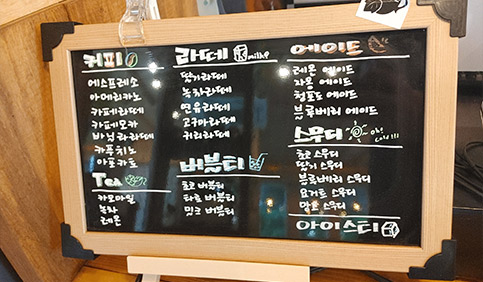 커피
에스프레소
아메리카노
카페라떼
카페모카
바닐라라떼
카푸치노
아포카토
Tea
카모마일
녹차
레몬
라떼 milk
딸기라떼
녹차라떼
연유라떼
고구마라떼
귀리라떼
버블티
초코 버블티
타로 버블티
밀크 버블티
에이드
레몬 에이드
자몽 에이드
청포도 에이드
블루베리 에이드
스무디 oh! cool!!!
초코 스무디
딸기 스무디
블루베리 스무디
요거트 스무디
망고 스무디
아이스티